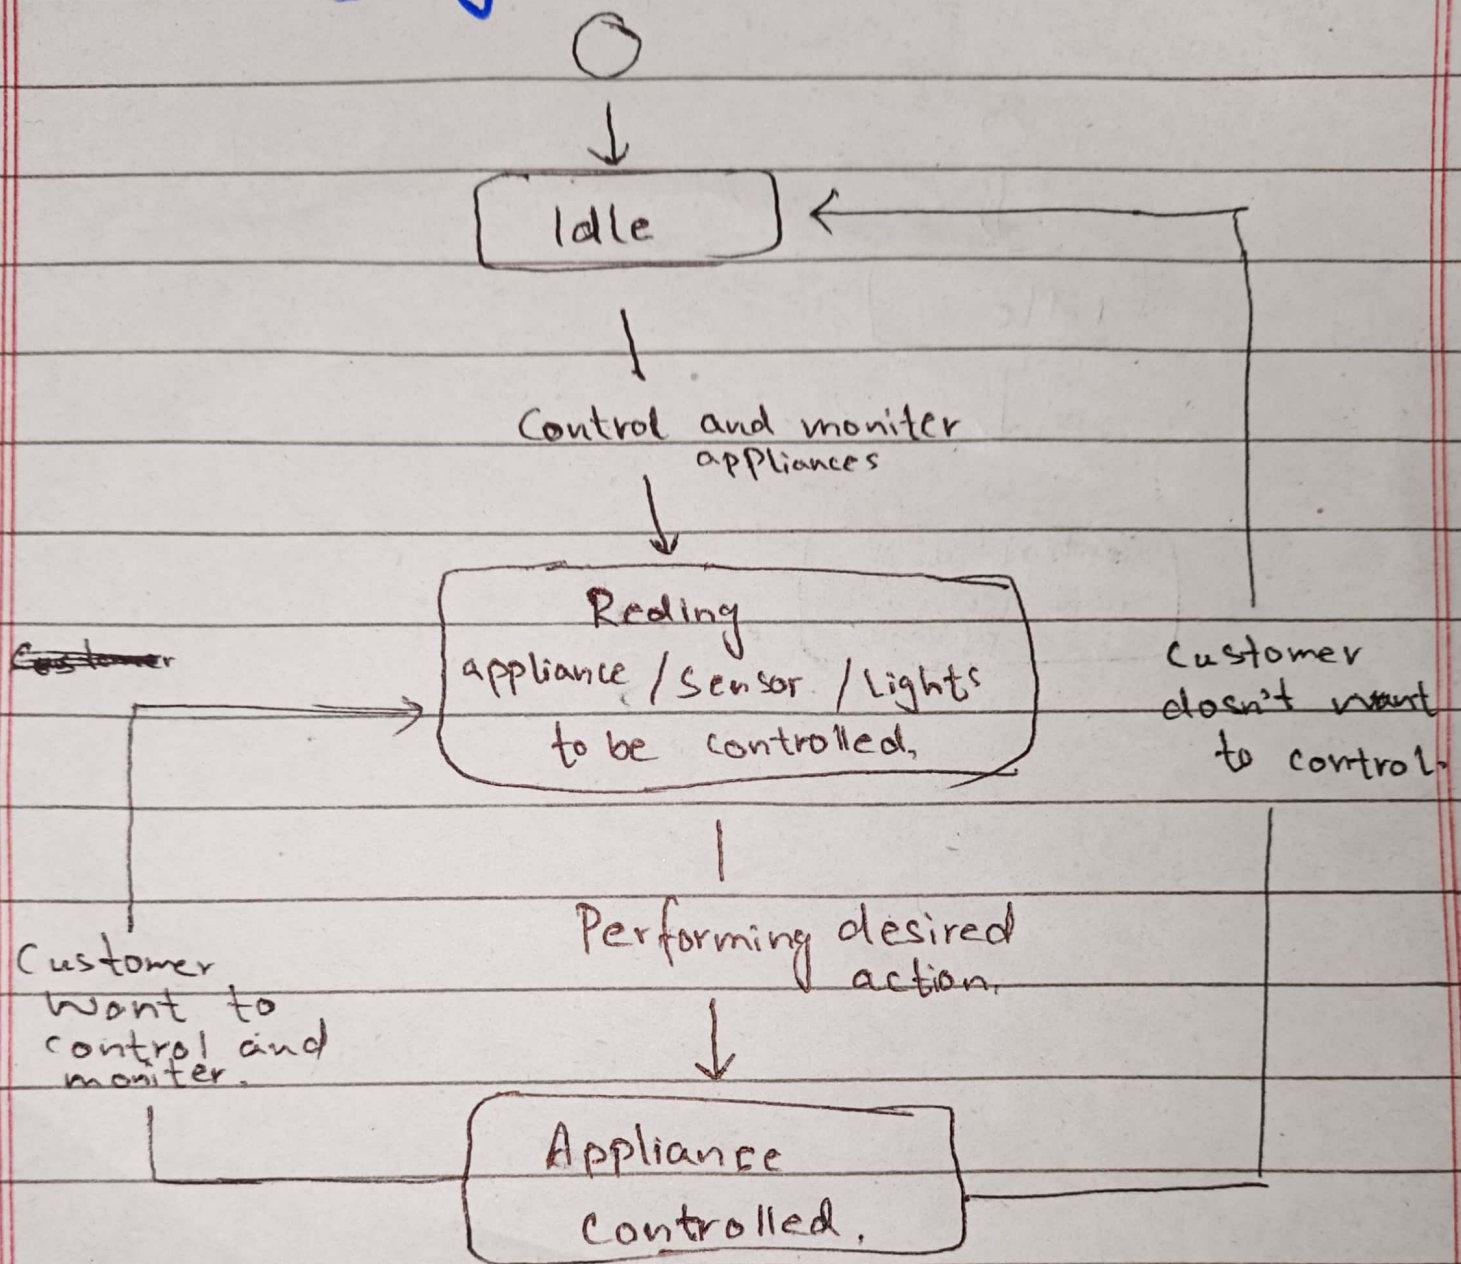 Idle
Control and moniter
appliances
Reding
appliance / Sensor / Lights
to be controlled.
Customer
Customer
dosn't want
to control.
Performing desired
action.
Customer
want to
control and
moniter.
Appliance
Controlled.